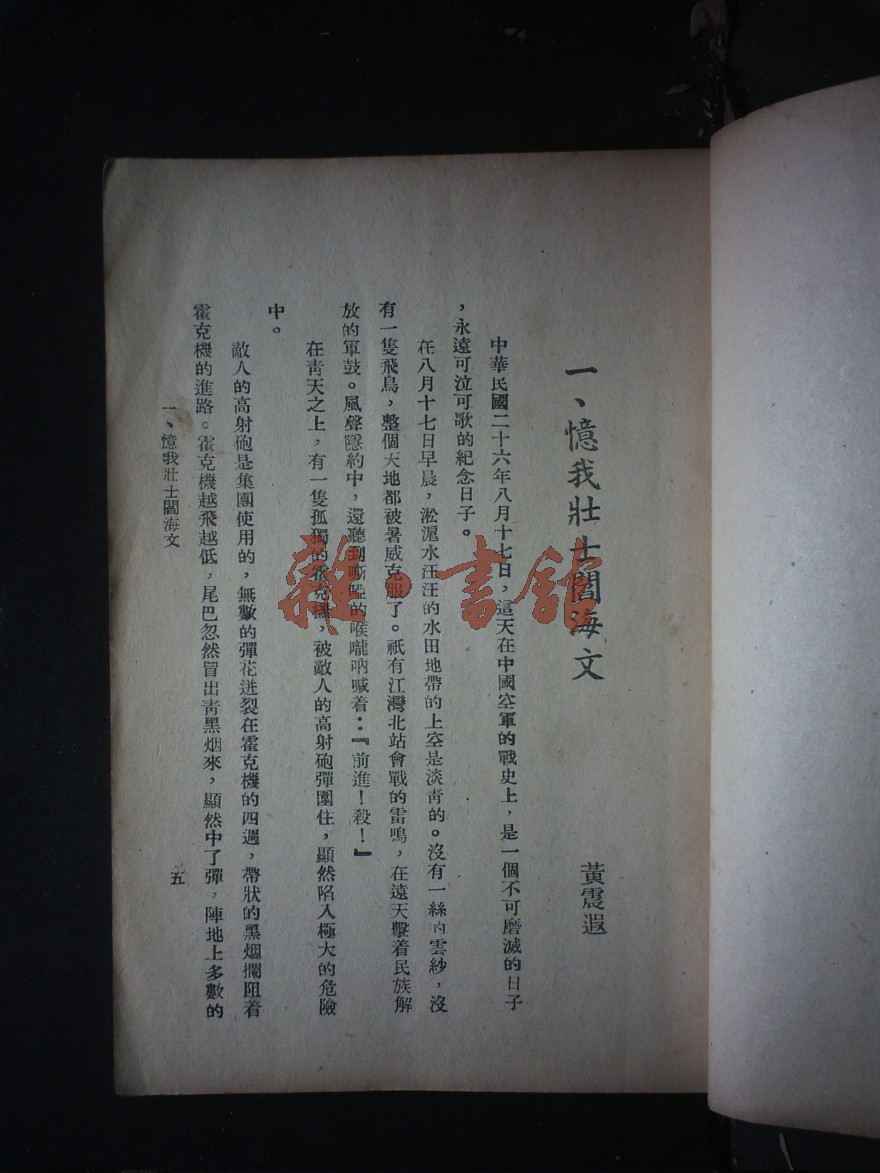 一、憶我壯士閻海文
黃震遐
中華民國二十六年八月十七日，這天在中國空軍的戰史上，是一個不可磨滅的日子
，永遠可泣可歌的紀念日子。
在八月十七日早晨，淞滬水汪汪的水田地帶的上空是淡靑的。沒有一絲的雲紗，沒
有一隻飛鳥，整個天地都被暑威克服了。祇有江灣北站會戰的雷鳴，在遠天擊着民族解
放的軍鼓。風聲隱約中，還聽到嘶啞的喉嚨吶喊着：『前進！殺！』
在靑天之上，有一隻孤獨的霍克機，被敵人的高射砲彈圍住，顯然陷入極大的危險
中。
敵人的高射砲是集團使用的，無數的彈花迸裂在霍克機的四週，帶狀的黑烟攔阻着
霍克機的進路。霍克機越飛越低，尾巴忽然冒出靑黑烟來，顯然中了彈，陣地上多數的
一、憶我壯士閻海文
五
雜·書館